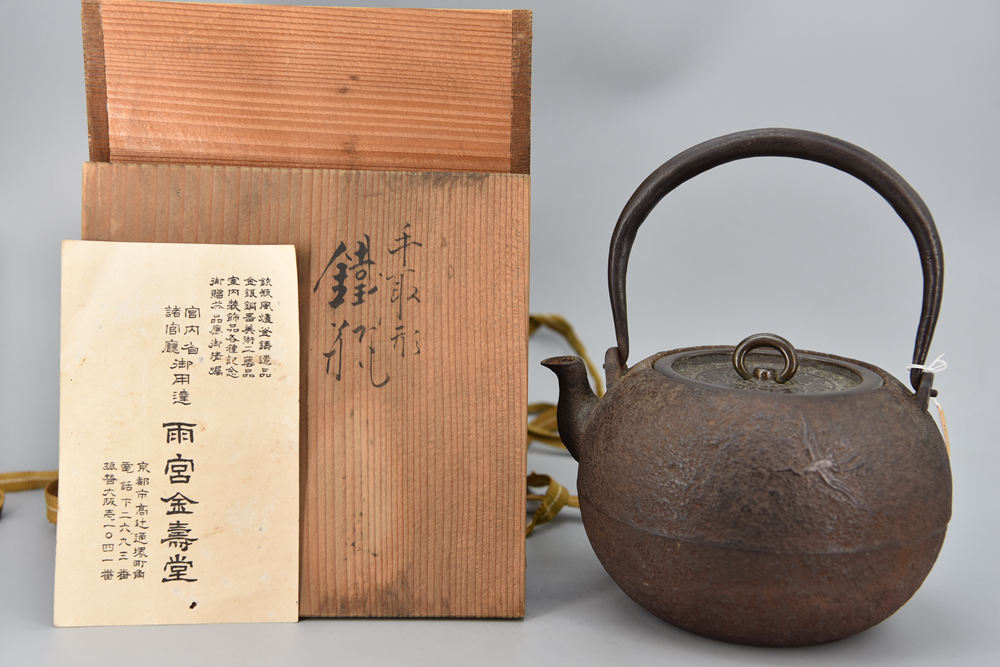 鉄瓶風炉釜鋳造品
金銀銅器美術工芸品
室内装飾品各種記念
御贈答品應御御嘱
宮内省御用達
諸官廳
雨宮金壽堂
京都市高辻通堺町角
電話下二六九三番
振替大阪壱一〇四一番
手取形
鐵瓶